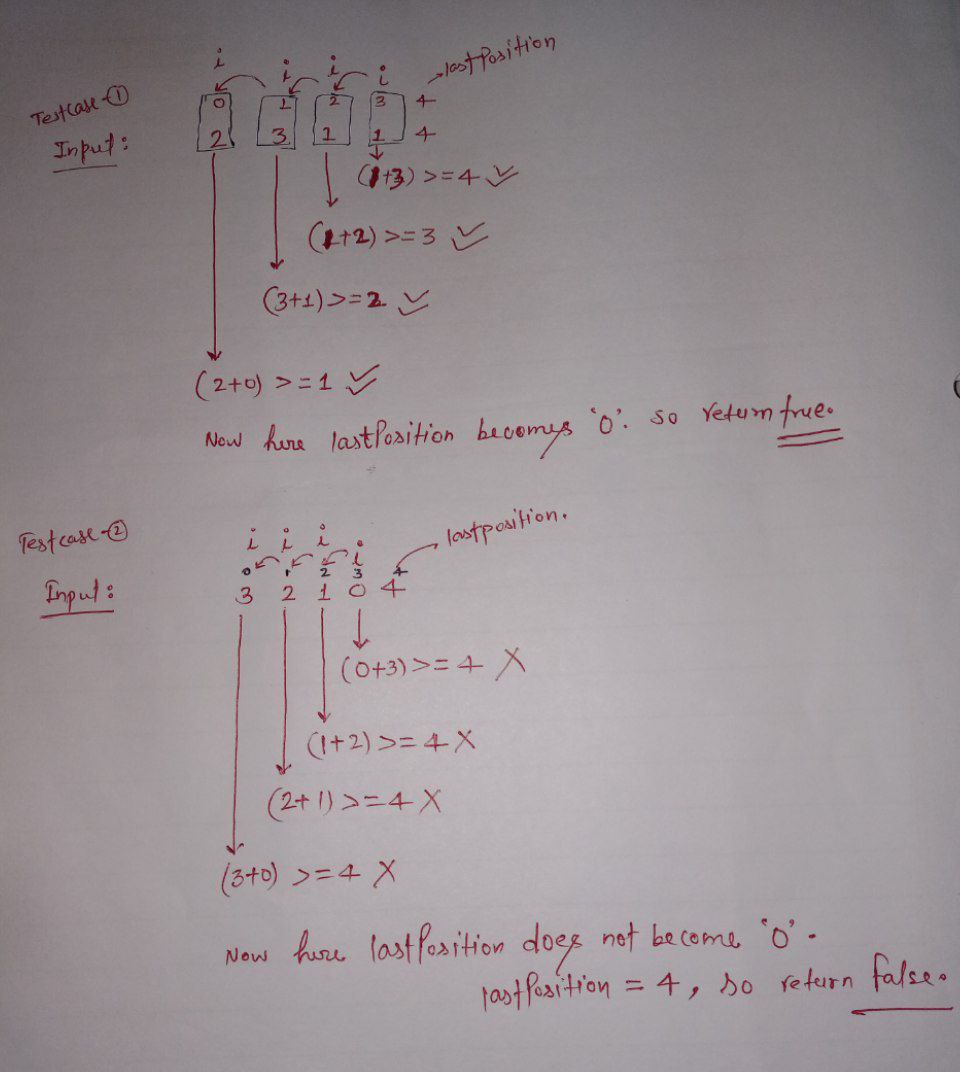 i i i i lastPosition
Testcase-①
0 1 2 3 4
Input:
2 3 1 1 4
(1+3) >=4 ✓
(1+2) >=3 ✓
(3+1) >=2 ✓
(2+0) >=1 ✓
Now here lastPosition becomes '0'. so return true.
Testcase-②
i i i i lastposition.
0 1 2 3 4
Input:
3 2 1 0 4
(0+3) >=4 X
(1+2) >=4 X
(2+1) >=4 X
(3+0) >=4 X
Now here lastPosition does not become '0'.
lastPosition = 4, so return false.